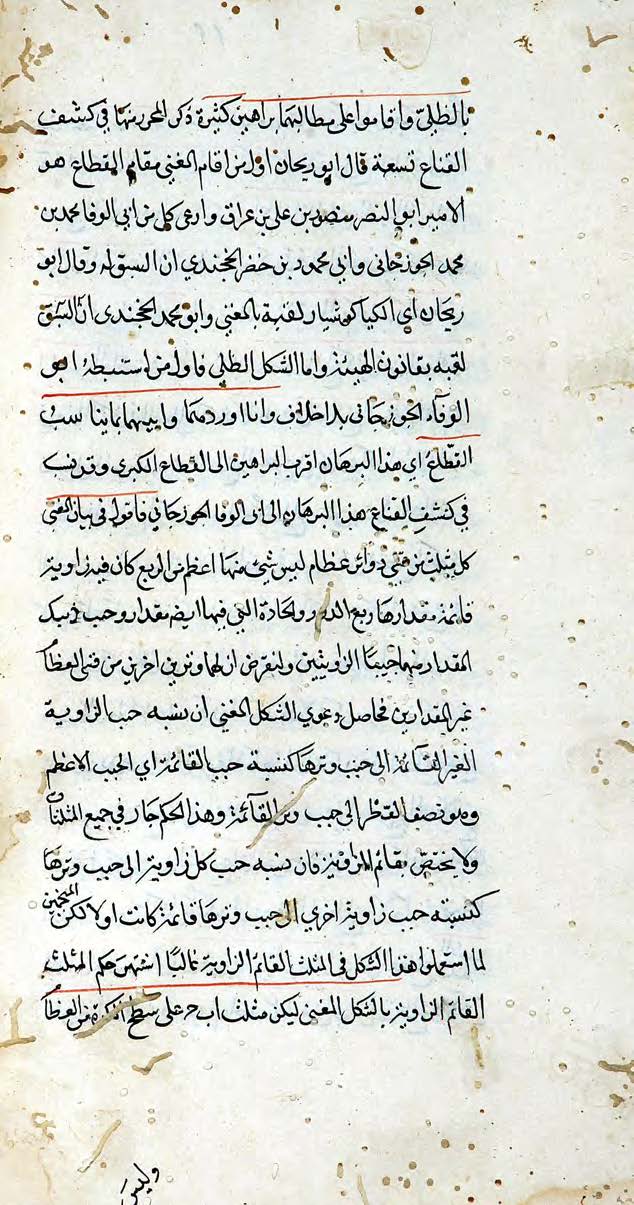 بالظلي واقاموا على مطالبهما براهين كثيرة ذكر المحرر منها في كشف
القناع تسعة قال ابو ريحان اول من اقام المغني مقام القطاع هو
الامير ابو النصر منصور بن علي بن عراق وادعى كل من ابي الوفا محمد بن
محمد الجوزجاني وابي محمود بن خضر الخجندي ان السبق له وقال ابو
ريحان اي الكيا كوشيار لقبه بالمغني وابو محمد الخجندي ان السبق
لقبه بقانون الهيئة واما الشكل الظلي فاول من استنبطه ابو
الوفاء الجوزجاني بلا خلاف وانا اوردهما وابينهما بما يناسب
القطاع اي هذا البرهان اقرب البراهين الى القطاع الكبرى وقد نسب
في كشف القناع هذا البرهان الى ابي الوفا الجوزجاني فاقول في بيان المغني
كل مثلث من قسي دوائر عظام ليس شئ منها اعظم من الربع كان فيه زاوية
قائمة مقدارها ربع الدور والحادة التي فيها ايضا مقدار وجيب ذينك
المقدارين هما جيبا الزاويتين ولنفرض ان لهما وترين اخرين من قسي العظام
غير المقدارين فحاصل دعوي الشكل المغني ان نسبه جيب الزاوية
الغير القائمة الى جيب وترها كنسبة جيب القائمة اي الجيب الاعظم
وهو نصف القطر الى جيب وتر القائمة وهذا الحكم جار في جميع المثلثات
ولا يختص بقائم الزاوية فان نسبه جيب كل زاوية الى جيب وترها
كنسبته جيب زاوية اخري الى جيب وترها قائمة كانت اولا لكن المنجمين
لما استعملوا هذا الشكل في المثلث القائم الزاوية غالبًا اشتهر حكم المثلث
القائم الزاوية بالشكل المغني ليكن مثلث اب ح على سطح الكرة من العظام
وليس